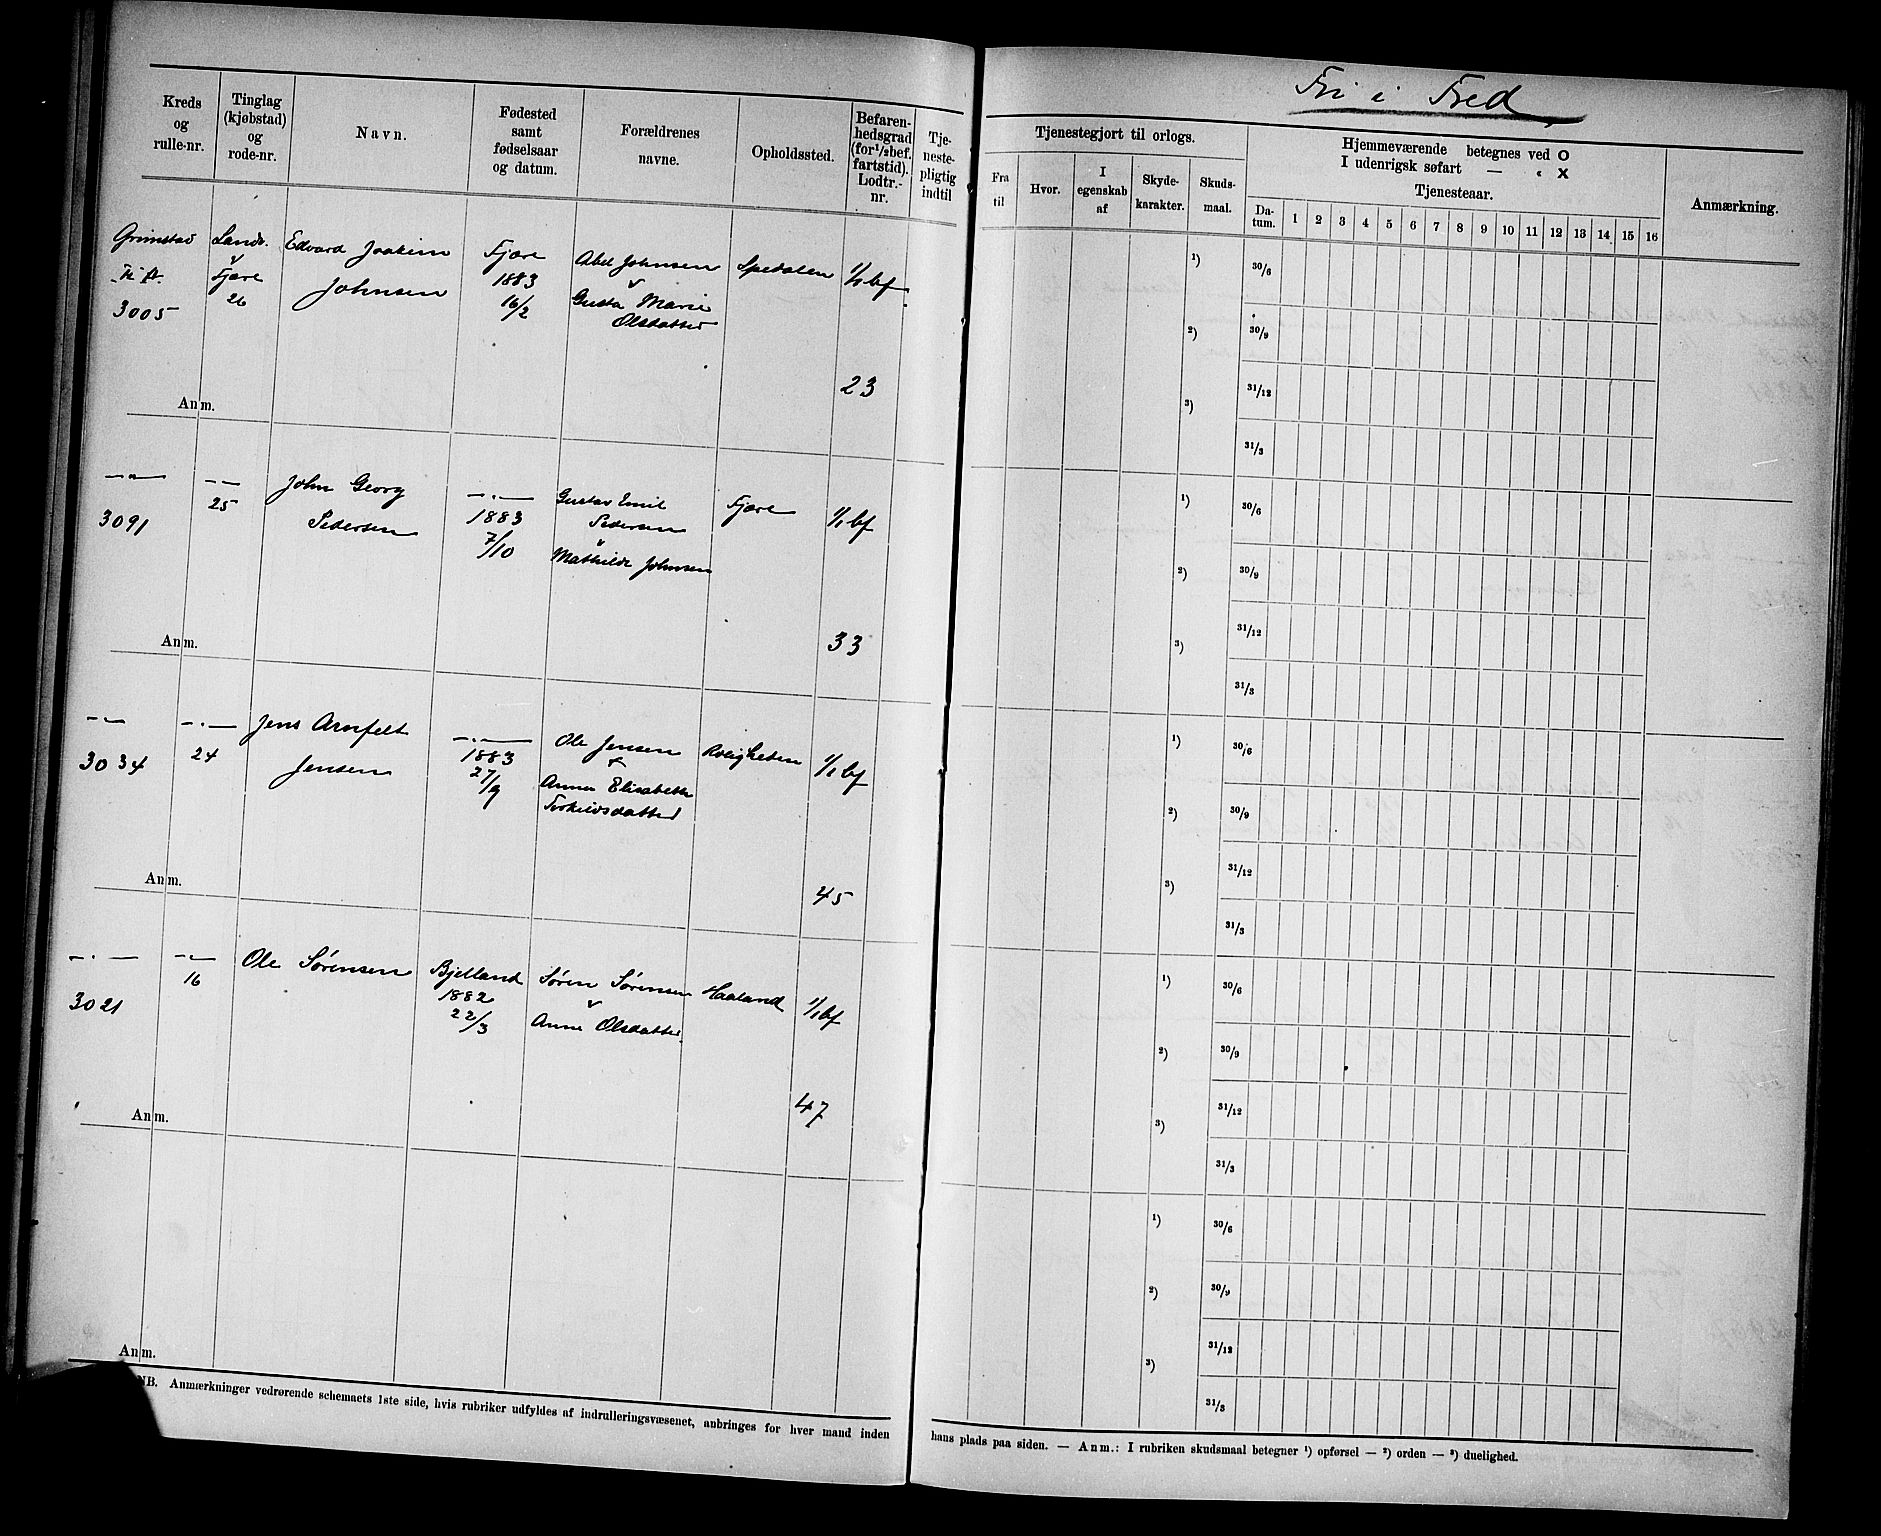 Fri i Fred
Kreds
og
rulle-nr.
Tinglag
(kjøbstad)
og
rode-nr.
Navn.
Fødested
samt
fødselsaar
og datum.
Forældrenes
navne.
Opholdssted.
Befaren-
hedsgrad
(for 1/2 bef.
fartstid).
Lodtr.-
nr.
Tje-
neste-
pligtig
indtil
Tjenestegjort til orlogs.
Fra
til
Hvor.
I
egenskab
af
Skyde-
karakter.
Skuds-
maal.
Hjemmeværende betegnes ved O
I udenrigsk søfart — " X
Tjenesteaar.
Da-
tum.
1 2 3 4 5 6 7 8 9 10 11 12 13 14 15 16
Anmærkning.
Grimstad
3005
Lands.
v
Fjære
26
Edvard Joakim
Johnsen
Fjære
1883
16/2
Abel Johnsen
v
Gusta Marie
Olsdatter
Spedalen
1/1 bf.
23
Anm.
1)
2)
3)
30/6
30/9
31/12
31/3
—"—
3091
— —
25
John Georg
Pedersen
—"—
1883
7/10
Gustav Emil
Pedersen
v
Mathilde Johnsen
Fjære
1/1 bf
33
Anm.
1)
2)
3)
30/6
30/9
31/12
31/3
—"—
3034
—"—
24
Jens Arnfelt
Jensen
—"—
1883
27/9
Ole Jensen
v
Anne Elisabeth
Terkelsdatter
Roligheden
1/1 bf
45
Anm.
1)
2)
3)
30/6
30/9
31/12
31/3
—"—
3021
—"—
16
Ole Sørensen
Bjelland
1882
22/3
Søren Sørensen
v
Anne Olsdatter
Haaland
1/1 bf
47
Anm.
1)
2)
3)
30/6
30/9
31/12
31/3
Anm.
1)
2)
3)
30/6
30/9
31/12
31/3
NB. Anmærkninger vedrørende schemaets 1ste side, hvis rubriker udfyldes af indrulleringsvæsenet, anbringes for hver mand inden
hans plads paa siden. — Anm.: I rubriken skudsmaal betegner 1) opførsel — 2) orden — 3) duelighed.